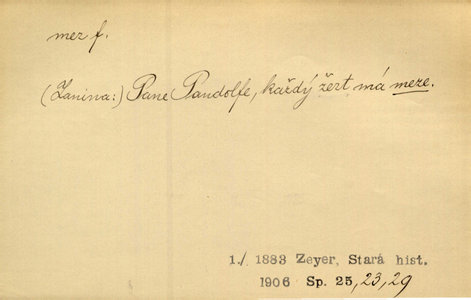 mez f.
(Zanina:) Pane Pandolfe, každý žert má meze.
1./ 1883 Zeyer, Stará hist.
1906 Sp. 25, 23, 29